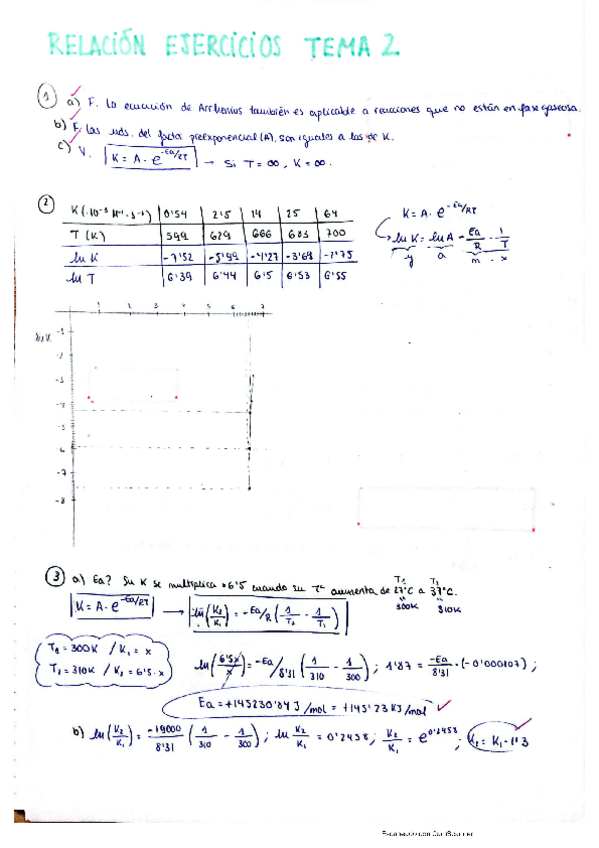 RELACIÓN EJERCICIOS TEMA 2
① a) F. La ecuación de Arrhenius también es aplicable a reacciones que no están en fase gaseosa.
b) F. Las uds. del factor preexponencial (A), son iguales a las de K.
c) V. K = A · e^-Ea/RT → Si T = ∞, K = ∞.
② K (·10⁻⁵ M⁻¹·s⁻¹) | 0'54 | 2'5 | 14 | 25 | 64
T (K) | 599 | 629 | 666 | 683 | 700
ln K | -7'52 | -5'99 | -4'27 | -3'68 | -2'75
ln T | 6'39 | 6'44 | 6'5 | 6'53 | 6'55
K = A · e^-Ea/RT
ln K = ln A - Ea/R · 1/T
y a m x
1 2 3 4 5 6 7
ln K
-1
-2
-3
-4
-5
-6
-7
-8
③ a) Ea? Su K se multiplica ×6'5 cuando su Tª aumenta de 27°C a 37°C.
T₁ T₂
300K 310K
K = A · e^-Ea/RT → ln(K₂/K₁) = -Ea/R (1/T₂ - 1/T₁)
T₁ = 300K / K₁ = x
T₂ = 310K / K₂ = 6'5 · x
ln(6'5x/x) = -Ea/8'31 (1/310 - 1/300) ; 1'87 = -Ea/8'31 · (-0'000107) ;
Ea = +145230'84 J/mol = +145'23 KJ/mol
b) ln(K₂/K₁) = -19000/8'31 (1/310 - 1/300) ; ln K₂/K₁ = 0'2458 ; K₂/K₁ = e^0'2458 ; K₂ = K₁ · 1'3